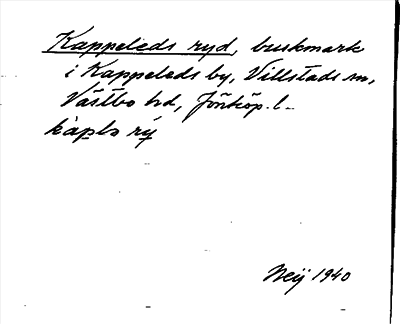 Kappeleds ryd, buskmark
i Kappeleds by, Villstads sn,
Västbo hd, Jönköp. l.
kapls rý
Neij 1940